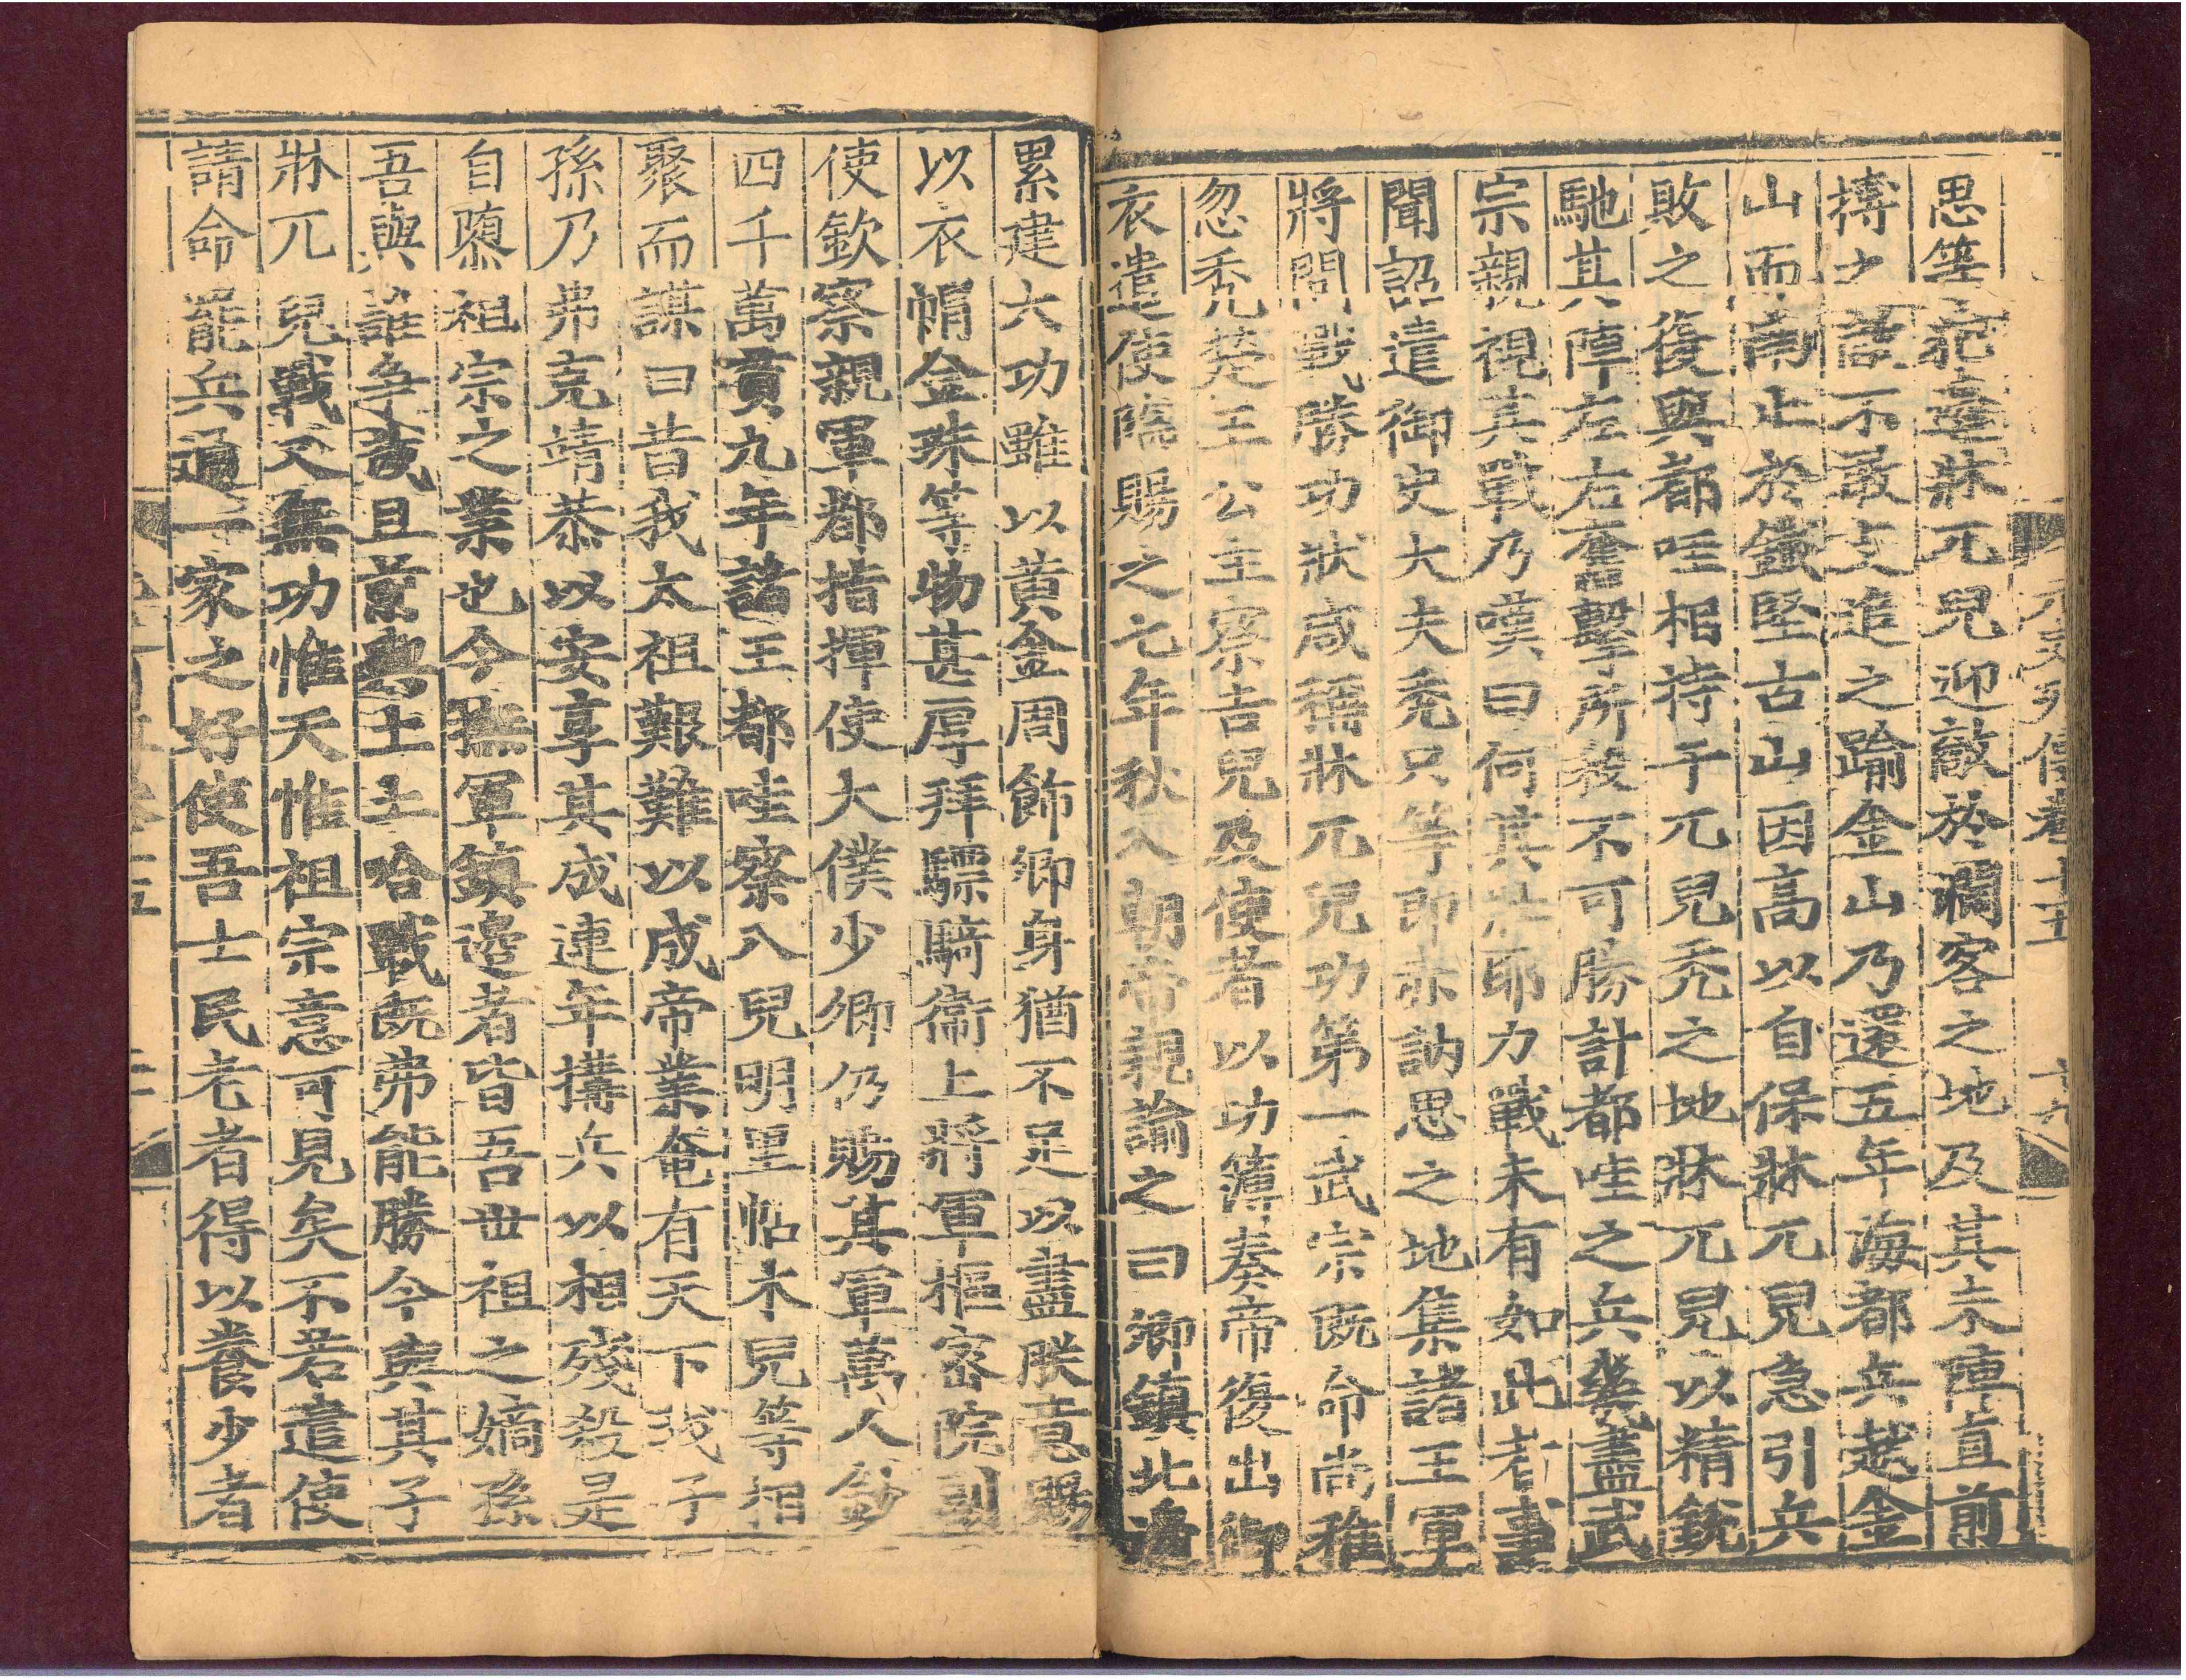 思等犯塞牀兀兒迎敵於濶客之地及其未陣直前
搏之敵不敢支追之踰金山乃還五年海都兵越金
山而南止於鐵堅古山因高以自保牀兀兒急引兵
敗之復與都哇相持于兀兒禿之地牀兀兒以精銳
馳其陣左右奮擊所殺不可勝計都哇之兵幾盡武
宗親視其戰乃嘆曰何其壯耶力戰未有如此者事
聞詔遣御史大夫禿只等即赤訥思之地集諸王軍
將問戰勝功狀咸稱牀兀兒功第一武宗既命尚雅
忽禿楚王公主察吉兒及使者以功簿奏帝復出御
衣遣使臨賜之七年秋入朝帝親諭之曰卿鎮北邊
累建大功雖以黃金周飾卿身猶不足以盡朕意賜
以衣帽金珠等物甚厚拜驃騎衞上將軍樞密院副
使欽察親軍都指揮使大僕少卿仍賜其軍萬人鈔
四千萬貫九年諸王都哇察八兒明里帖木兒等相
聚而謀曰昔我太祖艱難以成帝業奄有天下我子
孫乃弗克靖恭以安享其成連年搆兵以相殘殺是
自隳祖宗之業也今撫軍鎮邊者皆吾世祖之嫡孫
吾與誰爭哉且前與土土哈戰旣弗能勝今與其子
牀兀兒戰又無功惟天惟祖宗意可見矣不若遣使
請命罷兵通一家之好使吾士民老者得以養少者
元史列傳卷十五